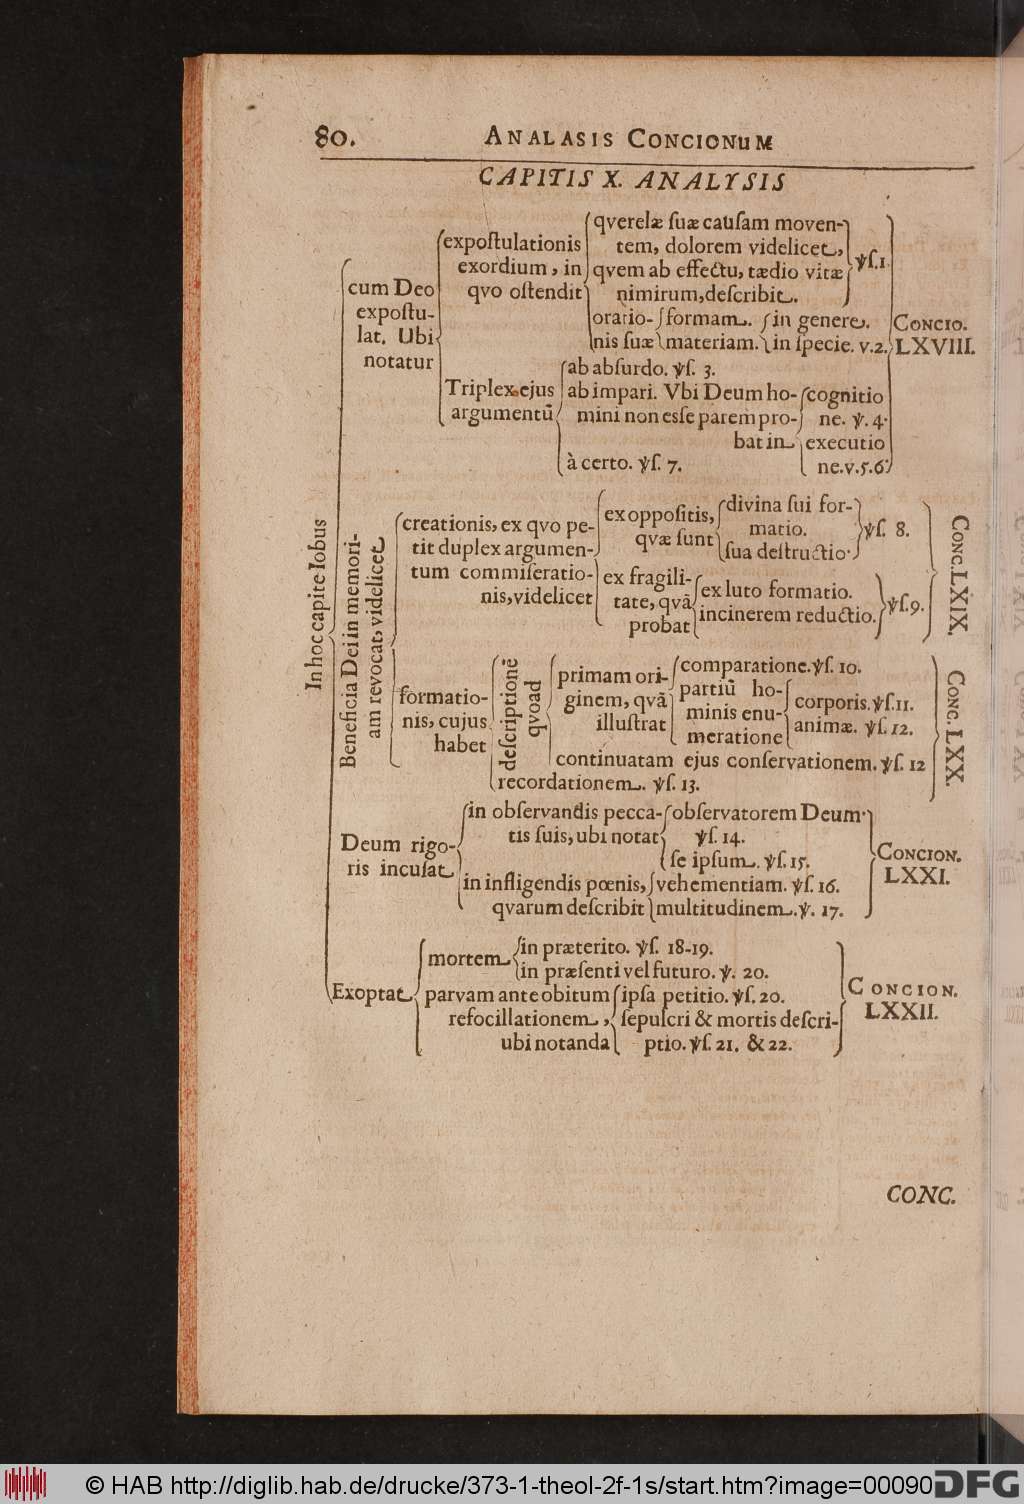 80.
ANALASIS CONCIONuM
CAPITIS X. ANALYSIS
In hoc capite Iobus
cum Deo
expoſtu-
lat. Ubi
notatur
expoſtulationis
exordium, in
qvo oſtendit
qverelæ ſuæ cauſam moven-
tem, dolorem videlicet,
qvem ab effectu, tædio vitæ
nimirum, deſcribit.
℣ſ.1
oratio-
nis ſuæ
formam.
materiam.
in genere.
in ſpecie. v.2.
Triplex ejus
argumentũ
ab abſurdo. ℣ſ. 3.
ab impari. Vbi Deum ho-
mini non esſe parem pro-
bat in
cognitio
ne. ℣. 4.
executio
ne. v. 5. 6.
à certo. ℣ſ. 7.
CONCIO.
LXVIII.
Beneficia Dei in memori-
am revocat, videlicet
creationis, ex qvo pe-
tit duplex argumen-
tum commiſeratio-
nis, videlicet
ex oppoſitis,
qvæ ſunt
divina ſui for-
matio.
ſua deſtructio.
℣ſ. 8.
ex fragili-
tate, qvã
probat
ex luto formatio.
in cinerem reductio.
℣ſ.9.
CONC. LXIX.
formatio-
nis, cujus
habet
deſcriptionẽ
qvoad
primam ori-
ginem, qvã
illuſtrat
comparatione. ℣ſ. 10.
partiũ ho-
minis enu-
meratione
corporis. ℣ſ. 11.
animæ. ℣ſ. 12.
continuatam ejus conſervationem. ℣ſ. 12
recordationem. ℣ſ. 13.
CONC. LXX.
Deum rigo-
ris incuſat
in obſervandis pecca-
tis ſuis, ubi notat
obſervatorem Deum.
℣ſ. 14.
ſe ipſum. ℣ſ. 15.
in infligendis pœnis,
qvarum deſcribit
vehementiam. ℣ſ. 16.
multitudinem. ℣. 17.
CONCION.
LXXI.
Exoptat
mortem
in præterito. ℣ſ. 18-19.
in præſenti vel futuro. ℣. 20.
parvam ante obitum
refocillationem,
ubi notanda
ipſa petitio. ℣ſ. 20.
ſepulcri & mortis deſcri-
ptio. ℣ſ. 21. & 22.
CONCION.
LXXII.
CONC.
© HAB http://diglib.hab.de/drucke/373-1-theol-2f-1s/start.htm?image=00090
DFG